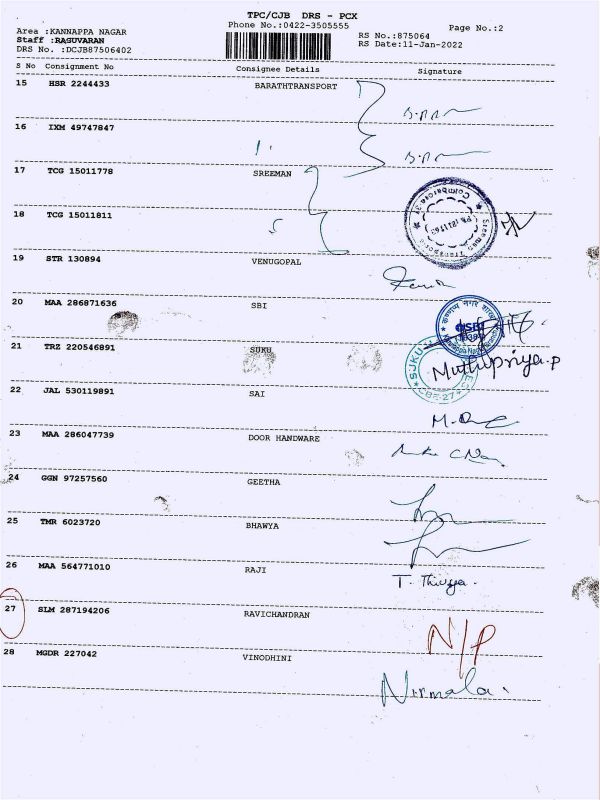 TPC/CJB DRS - PCX
Phone No.:0422-3505555
Page No.:2
Area :KANNAPPA NAGAR
Staff :RAGUVARAN
DRS No. :DCJB87506402
RS No.:875064
RS Date:11-Jan-2022
S No Consignment No Consignee Details Signature
15 HSR 2244433 BARATHTRANSPORT
16 IXM 49747847
17 TCG 15011778 SREEMAN
18 TCG 15011811
19 STR 130894 VENUGOPAL
20 MAA 286871636 SBI
21 TRZ 220546891 SUKU
Muthupriya.P
22 JAL 530119891 SAI
23 MAA 286047739 DOOR HANDWARE
24 GGN 97257560 GEETHA
25 TMR 6023720 BHAWYA
26 MAA 564771010 RAJI
T. Thivya.
27 SLM 287194206 RAVICHANDRAN
N/P
28 MGDR 227042 VINODHINI
Nirmala.